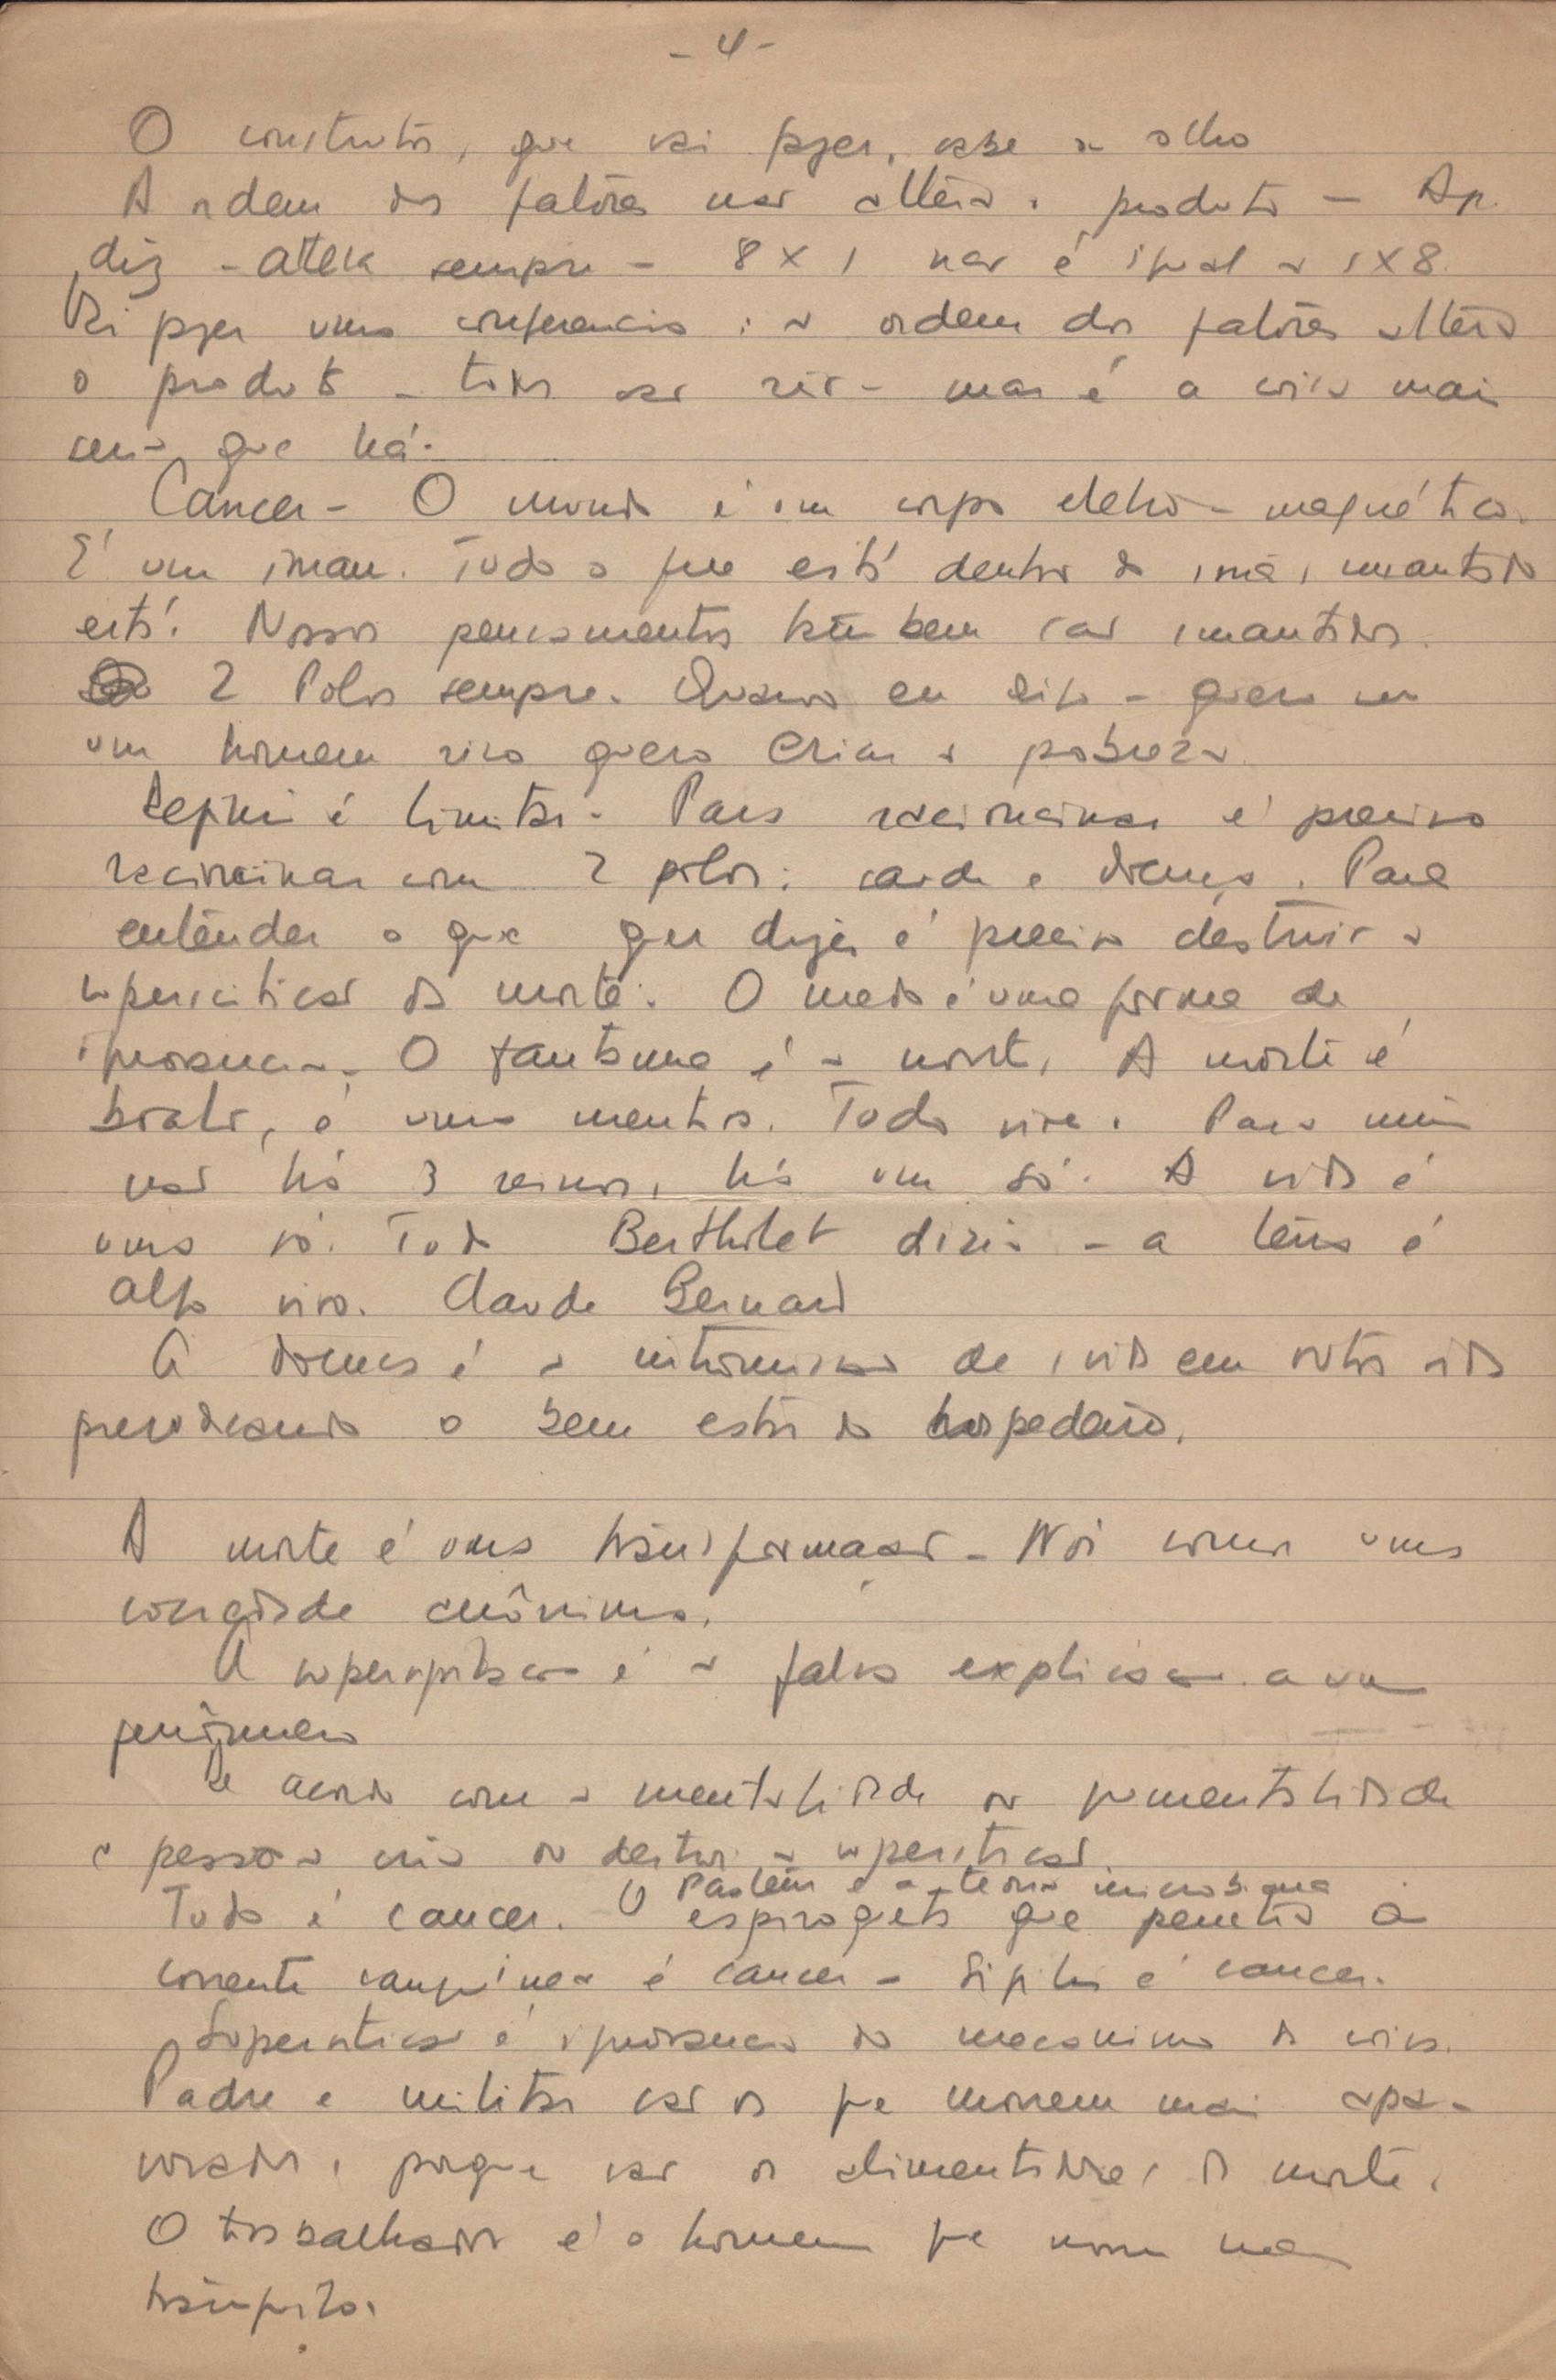 - 4 -
O construtor, que vai fazer, sabe a olho
A ordem dos fatores nao altera o produto — Ap.
diz - altera sempre - 8 X 1 nao é igual a 1 X 8.
Vai fazer uma conferencia : a ordem dos fatores altera
o produto - todos vao rir - mas é a coisa mais
seria que há.
Cancer - O mundo é um corpo eletro-magnético.
É um iman. Tudo o que está dentro do imã, imantado
está. Nossos pensamentos tambem sao imantados.
2 Polos sempre. Quando eu digo - quero ser
um homem rico quero criar a pobreza.
Definir é limitar. Para raciocinar é preciso
raciocinar com 2 polos: saude e doença. Para
entender o que quer dizer é preciso destruir a
superstiçao da morte. O medo é uma forma de
ignorancia. O fantasma é a morte. A morte é
boato, é uma mentira. Tudo vive. Para mim
nao há 3 reinos, há um só. A vida é
uma só. Tudo Berthelot dizia - a terra é
algo vivo. Claude Bernard
A doença é a intromissao de 1 vida em outra vida
prejudicando o bem estar do hospedeiro.
A morte é uma transformaçao - Nós somos uma
sociedade anônima.
A superstiçao é a falsa explicaçao a um
fenômeno
De acordo com a mentalidade ou
a pessoa cria ou destroi a superstiçao.
O Pasteur e a teoria microbiana
Tudo é cancer. O espiroqueta que penetra a
corrente sanguínea é cancer - Sifilis é cancer.
Superstiçao é ignorancia do mecanismo da coisa.
Padre e militar sao os que morrem mais apa-
vorados, porque sao os alimentadores da morte.
O trabalhador é o homem que morre mais
tranquilo.